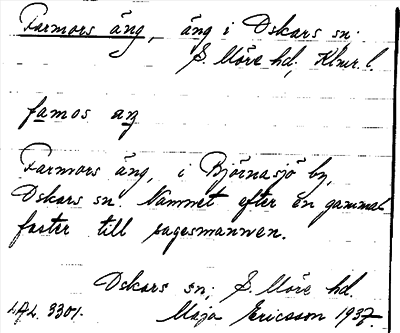 Farmors äng, äng i Oskars sn.
S. Möre hd, Klmr. l.
famos aŋ
Farmors äng, i Björnasjö by,
Oskars sn. Namnet efter en gammal
faster till sagesmannen.
Oskars sn; S. Möre hd.
L.A.L. 3301. Maja Ericsson 1937